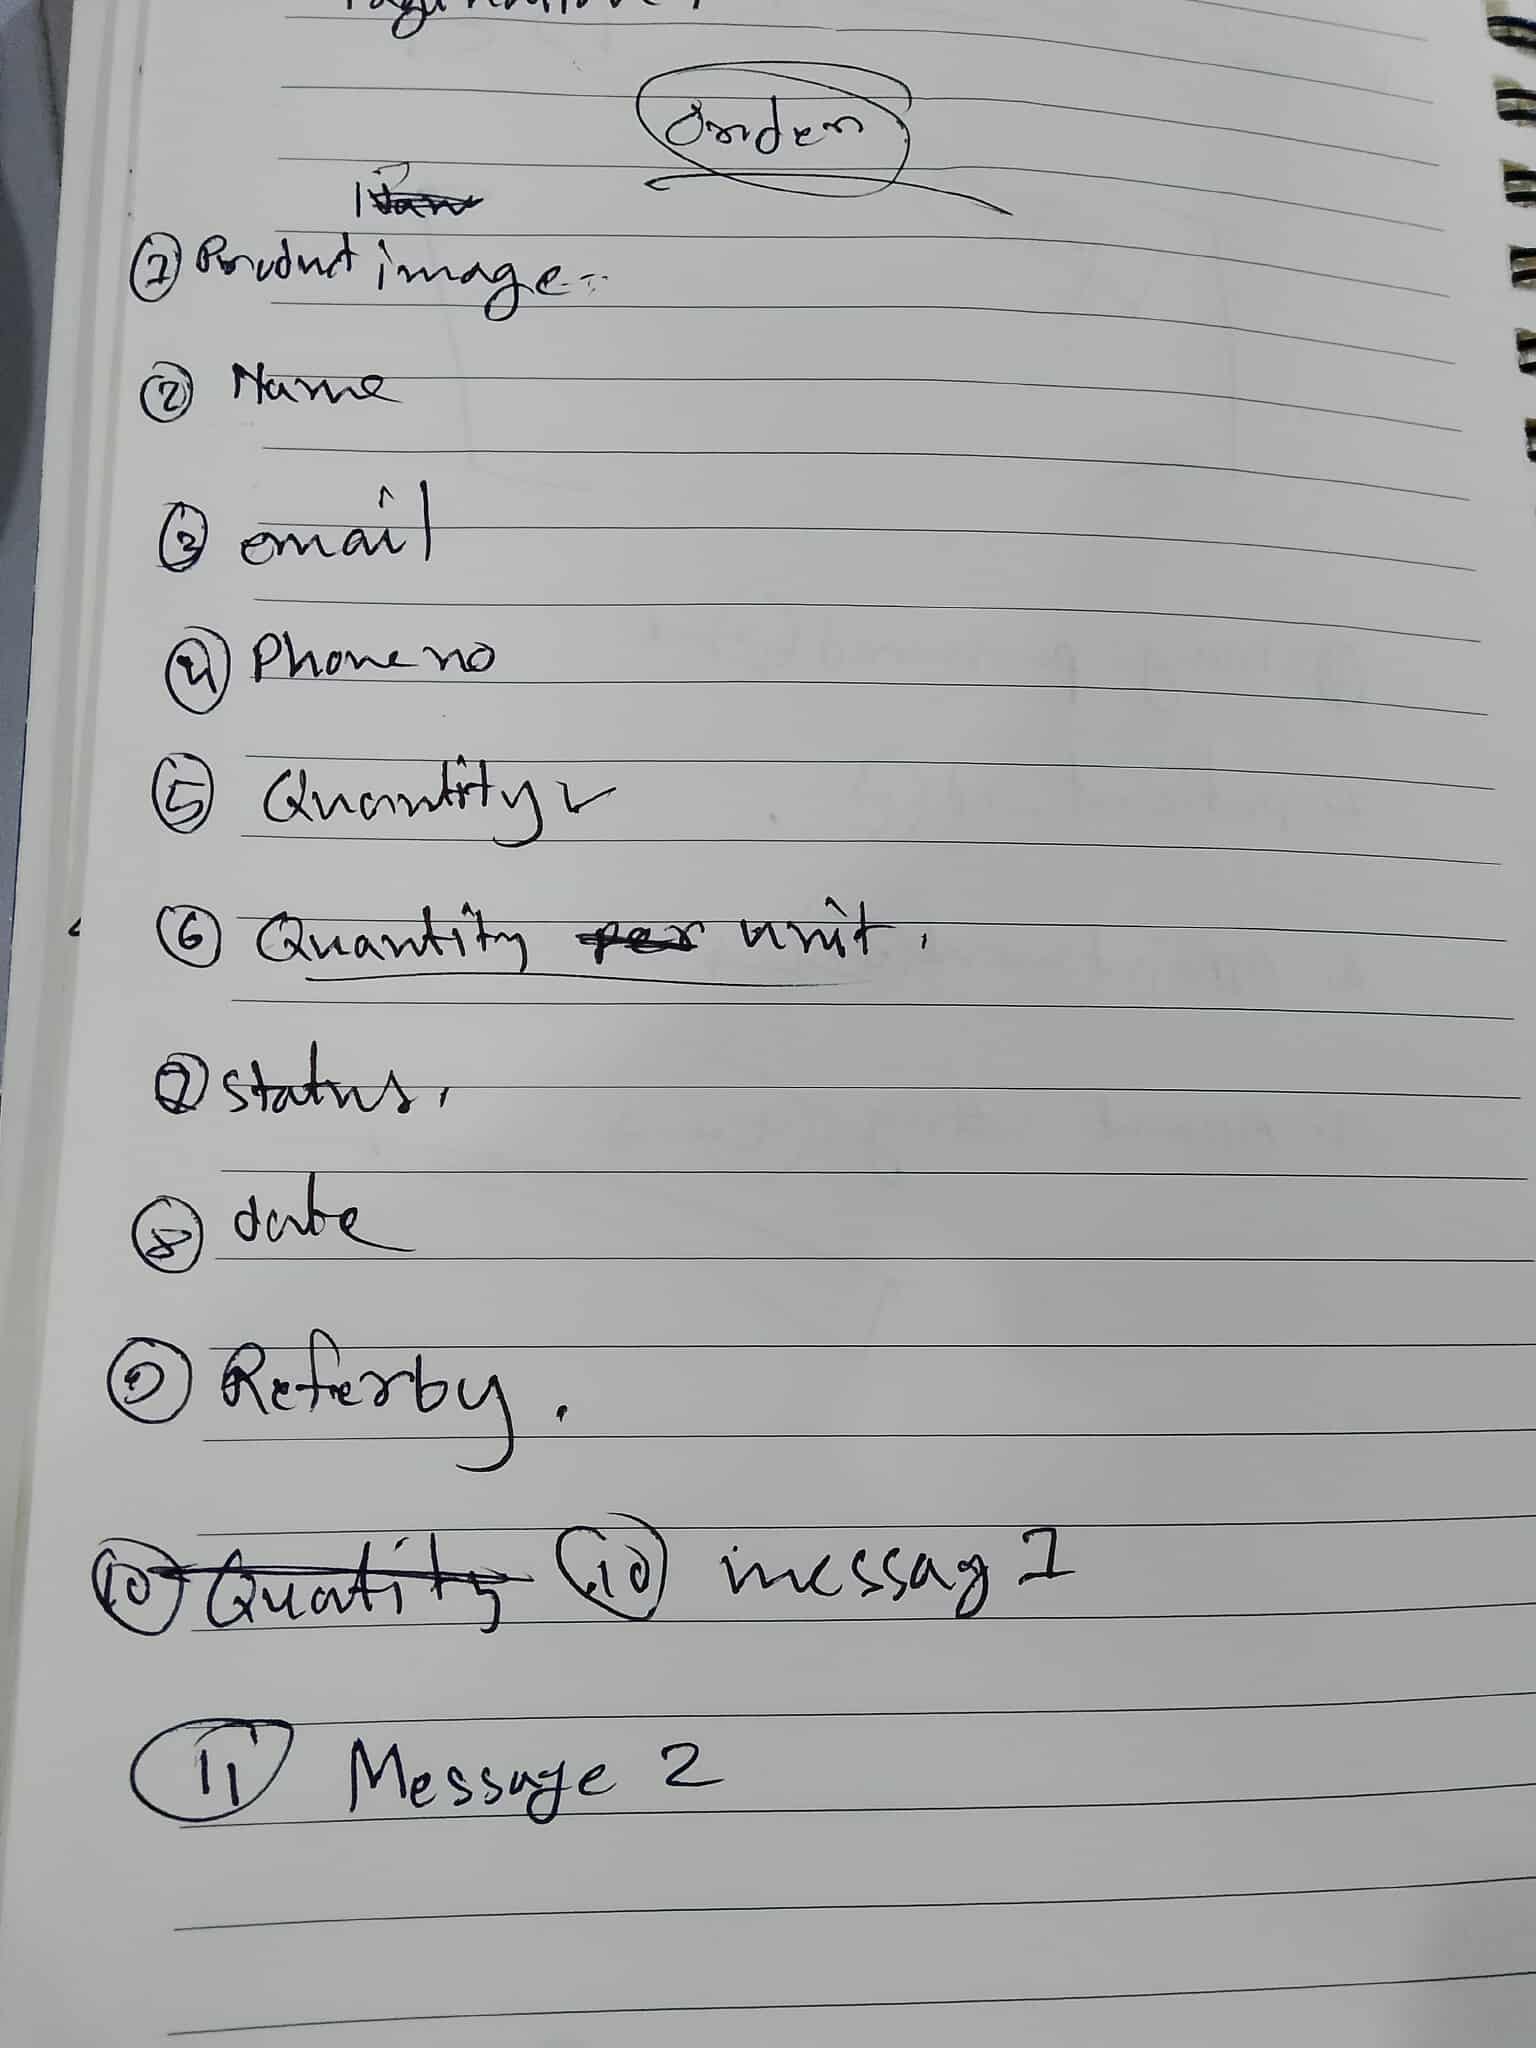 Order
① Product image
② Name
③ email
④ Phone no
⑤ Quantity
⑥ Quantity per unit.
⑦ status,
⑧ date
⑨ Referby.
⑩ Quatity ⑩ messag 1
⑪ Message 2